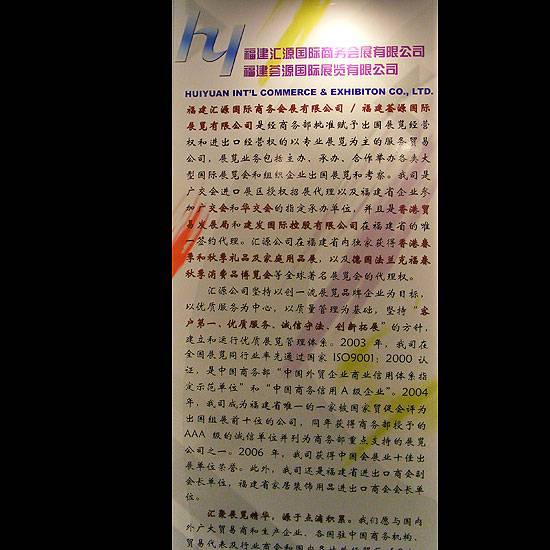 hy
福建汇源国际商务会展有限公司
福建荟源国际展览有限公司
HUIYUAN INT'L COMMERCE & EXHIBITON CO., LTD.
福建汇源国际商务会展有限公司 / 福建荟源国际
展览有限公司是经商务部批准赋予出国展览经营
权和进出口经营权的以专业展览为主的服务贸易
公司，展览业务包括主办、承办、合作举办各类大
型国际展览会和组织企业出国展览和考察。我司是
广交会进口展区授权招展代理以及福建省企业参
加广交会和华交会的指定承办单位，并且是香港贸
易发展局和建发国际控股有限公司在福建省的唯
一签约代理。汇源公司在福建省内独家获得香港春
季和秋季礼品及家庭用品展，以及德国法兰克福春
秋季消费品博览会等全球著名展览会的代理权。
汇源公司坚持以创一流展览品牌企业为目标，
以优质服务为中心，以质量管理为基础，坚持“客
户第一、优质服务、诚信守法、创新拓展”的方针，
建立和运行优质展览管理体系。2003 年，我司在
全国展览同行业率先通过国家 ISO9001：2000 认
证，是中国商务部“中国外贸企业商业信用体系指
定示范单位”和“中国商务信用 A 级企业”。2004
年，我司成为福建省唯一的一家被国家贸促会评为
出国组展前十位的公司，同年获得商务部授予的
AAA 级的诚信单位并列为商务部重点支持的展览
公司之一。2006 年，我司获得中国会展业十佳出
展单位荣誉。此外，我司还是福建省进出口商会副
会长单位，福建省家居装饰用品进出口商会会长单
位。
汇聚展览精华，源于点滴积累。我们愿与国内
外广大贸易商和生产企业、各国驻中国商务机构、
贸易代表及行业商会和国内各